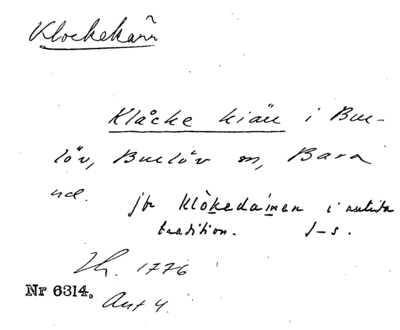 Klockekärr
Klåcke kiäu i Bur-
löv, Burlöv sn, Bara
hd.
jfr Klòkedaimen i nutida
tradition. J-s.
Lh. 1776
Nr 6314. Ant 4.